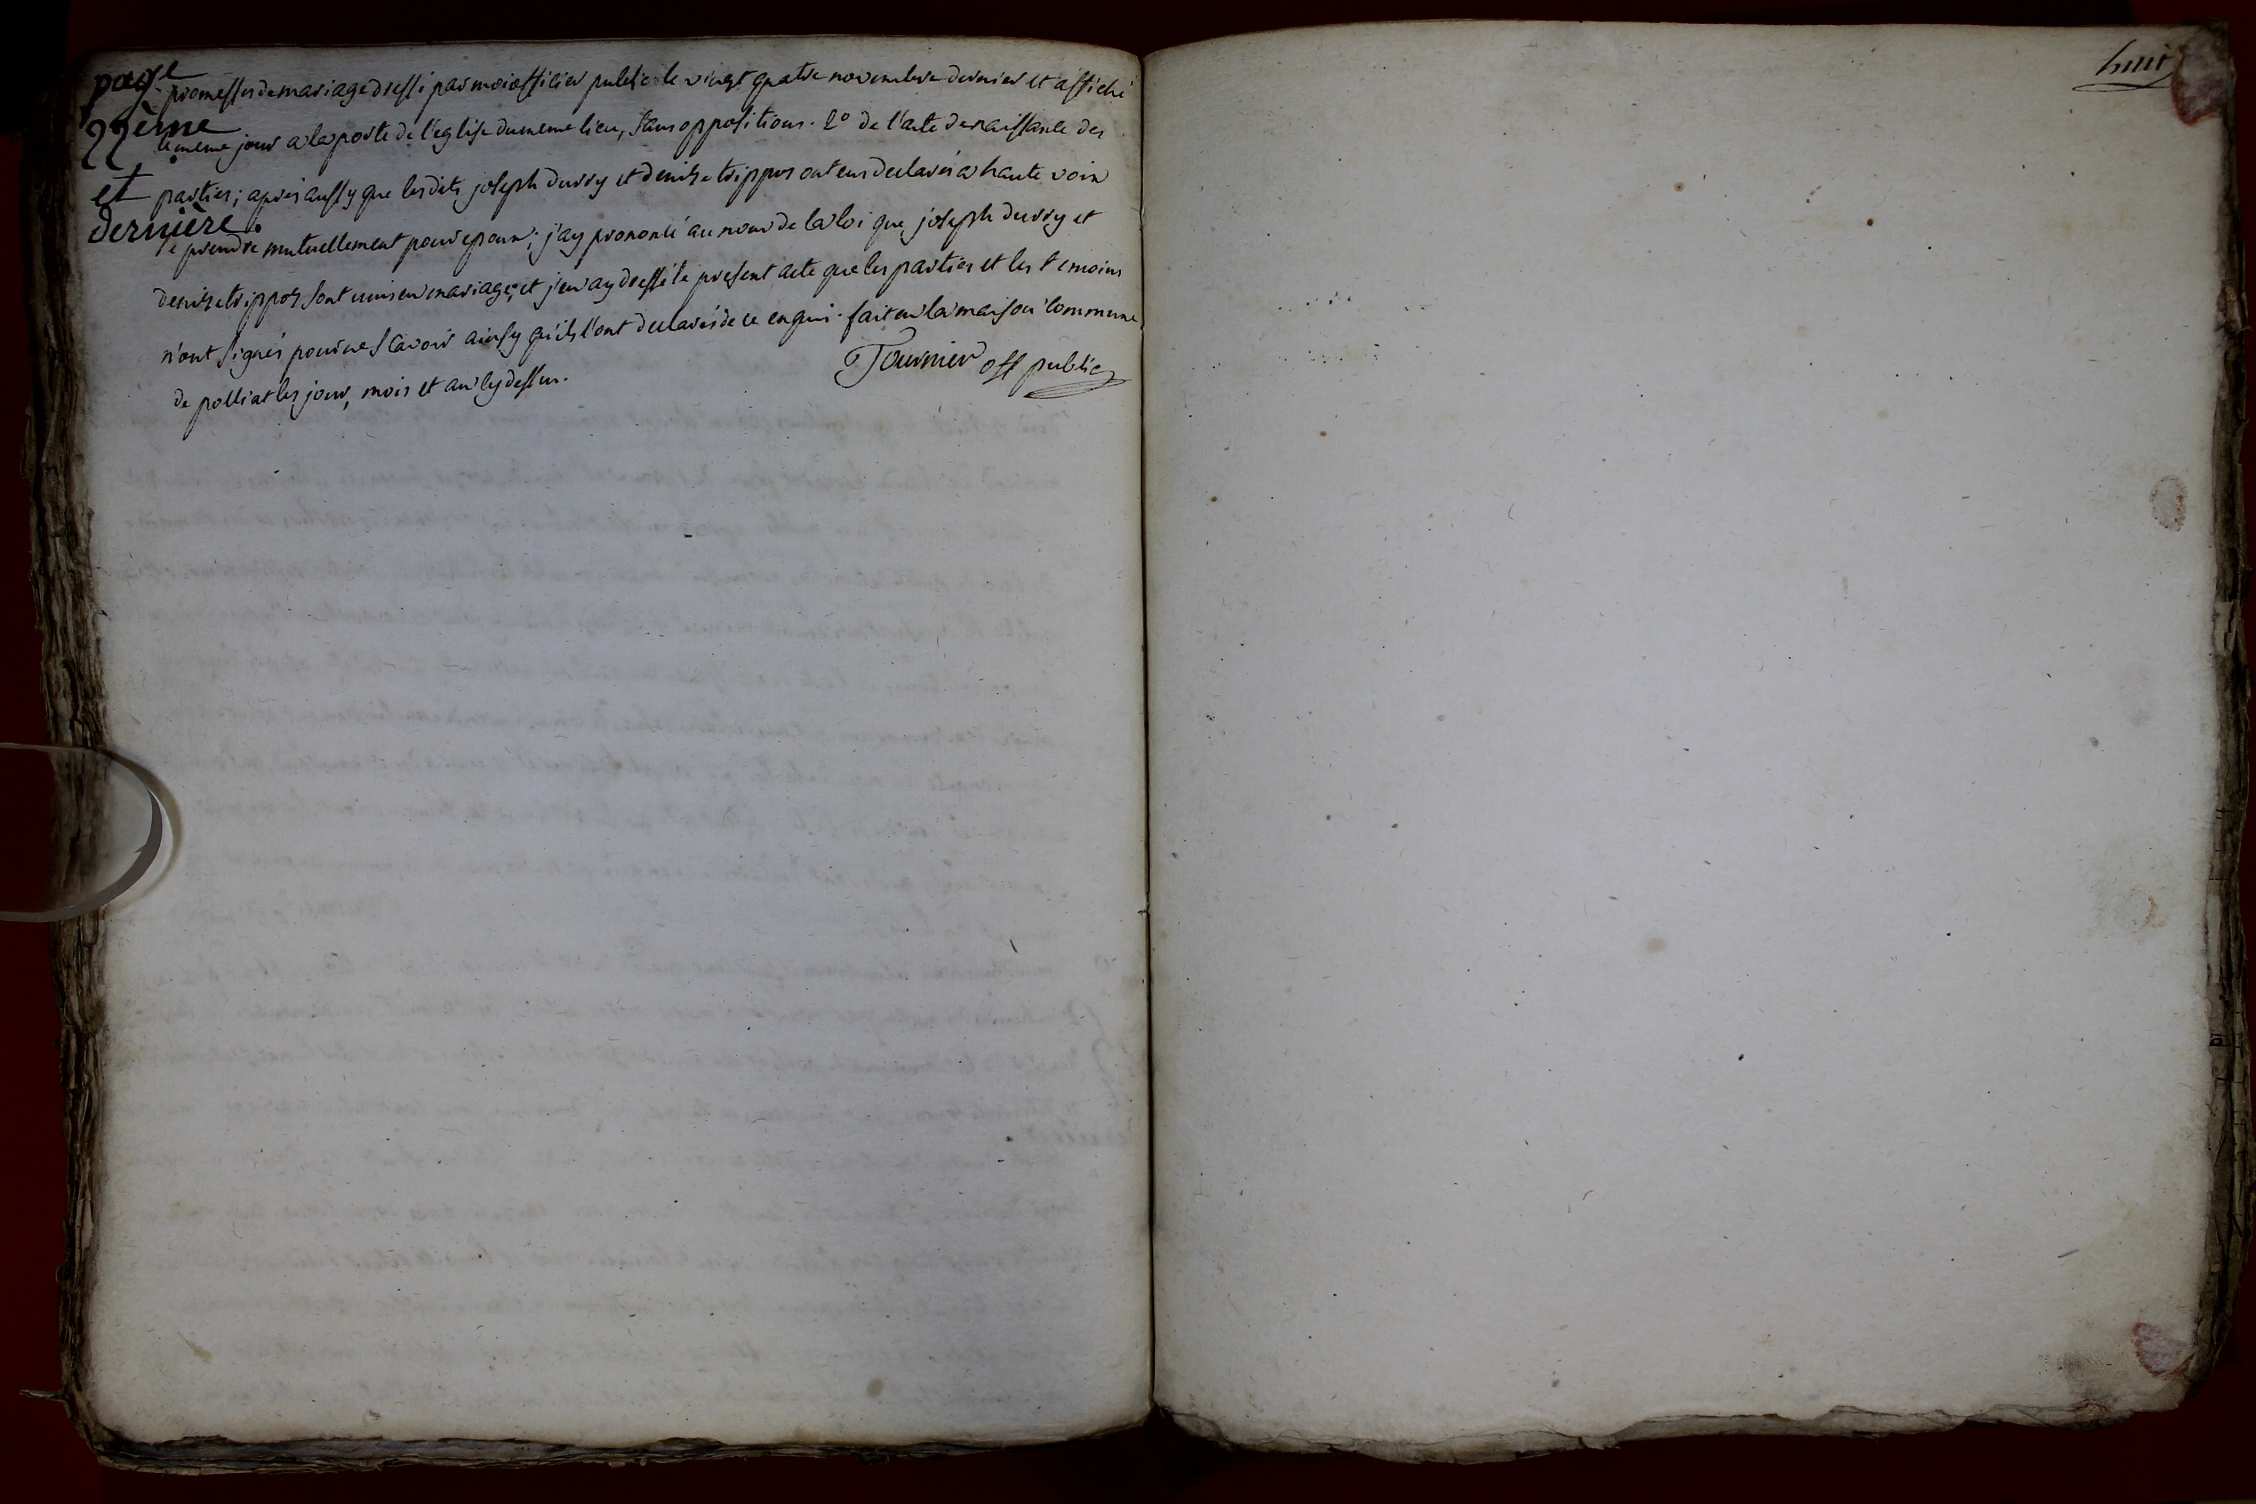 page
22ème
et
dernière.
promesses de mariage dressé par moi officier public le vingt quatre novembre dernier et affiché
le meme jour a la porte de l'eglise du meme lieu, sans oppositions. 2° de l'acte de naissance des
parties; après aussy que lesdits joseph durry et denise trippoz ont eus declarés a haute voix
se prendre mutuellement pour epoux; j'ay prononcé au nom de la loi que joseph durry et
denise trippoz sont unis en mariage; et j'en ay dressé le present acte que les parties et les temoins
n'ont signés pour ne scavoir ainsy qu'ils l'ont declarés de ce enquis. fait en la maison commune
de polliat les jour, mois et an cy dessus.
Tournier off public
huit